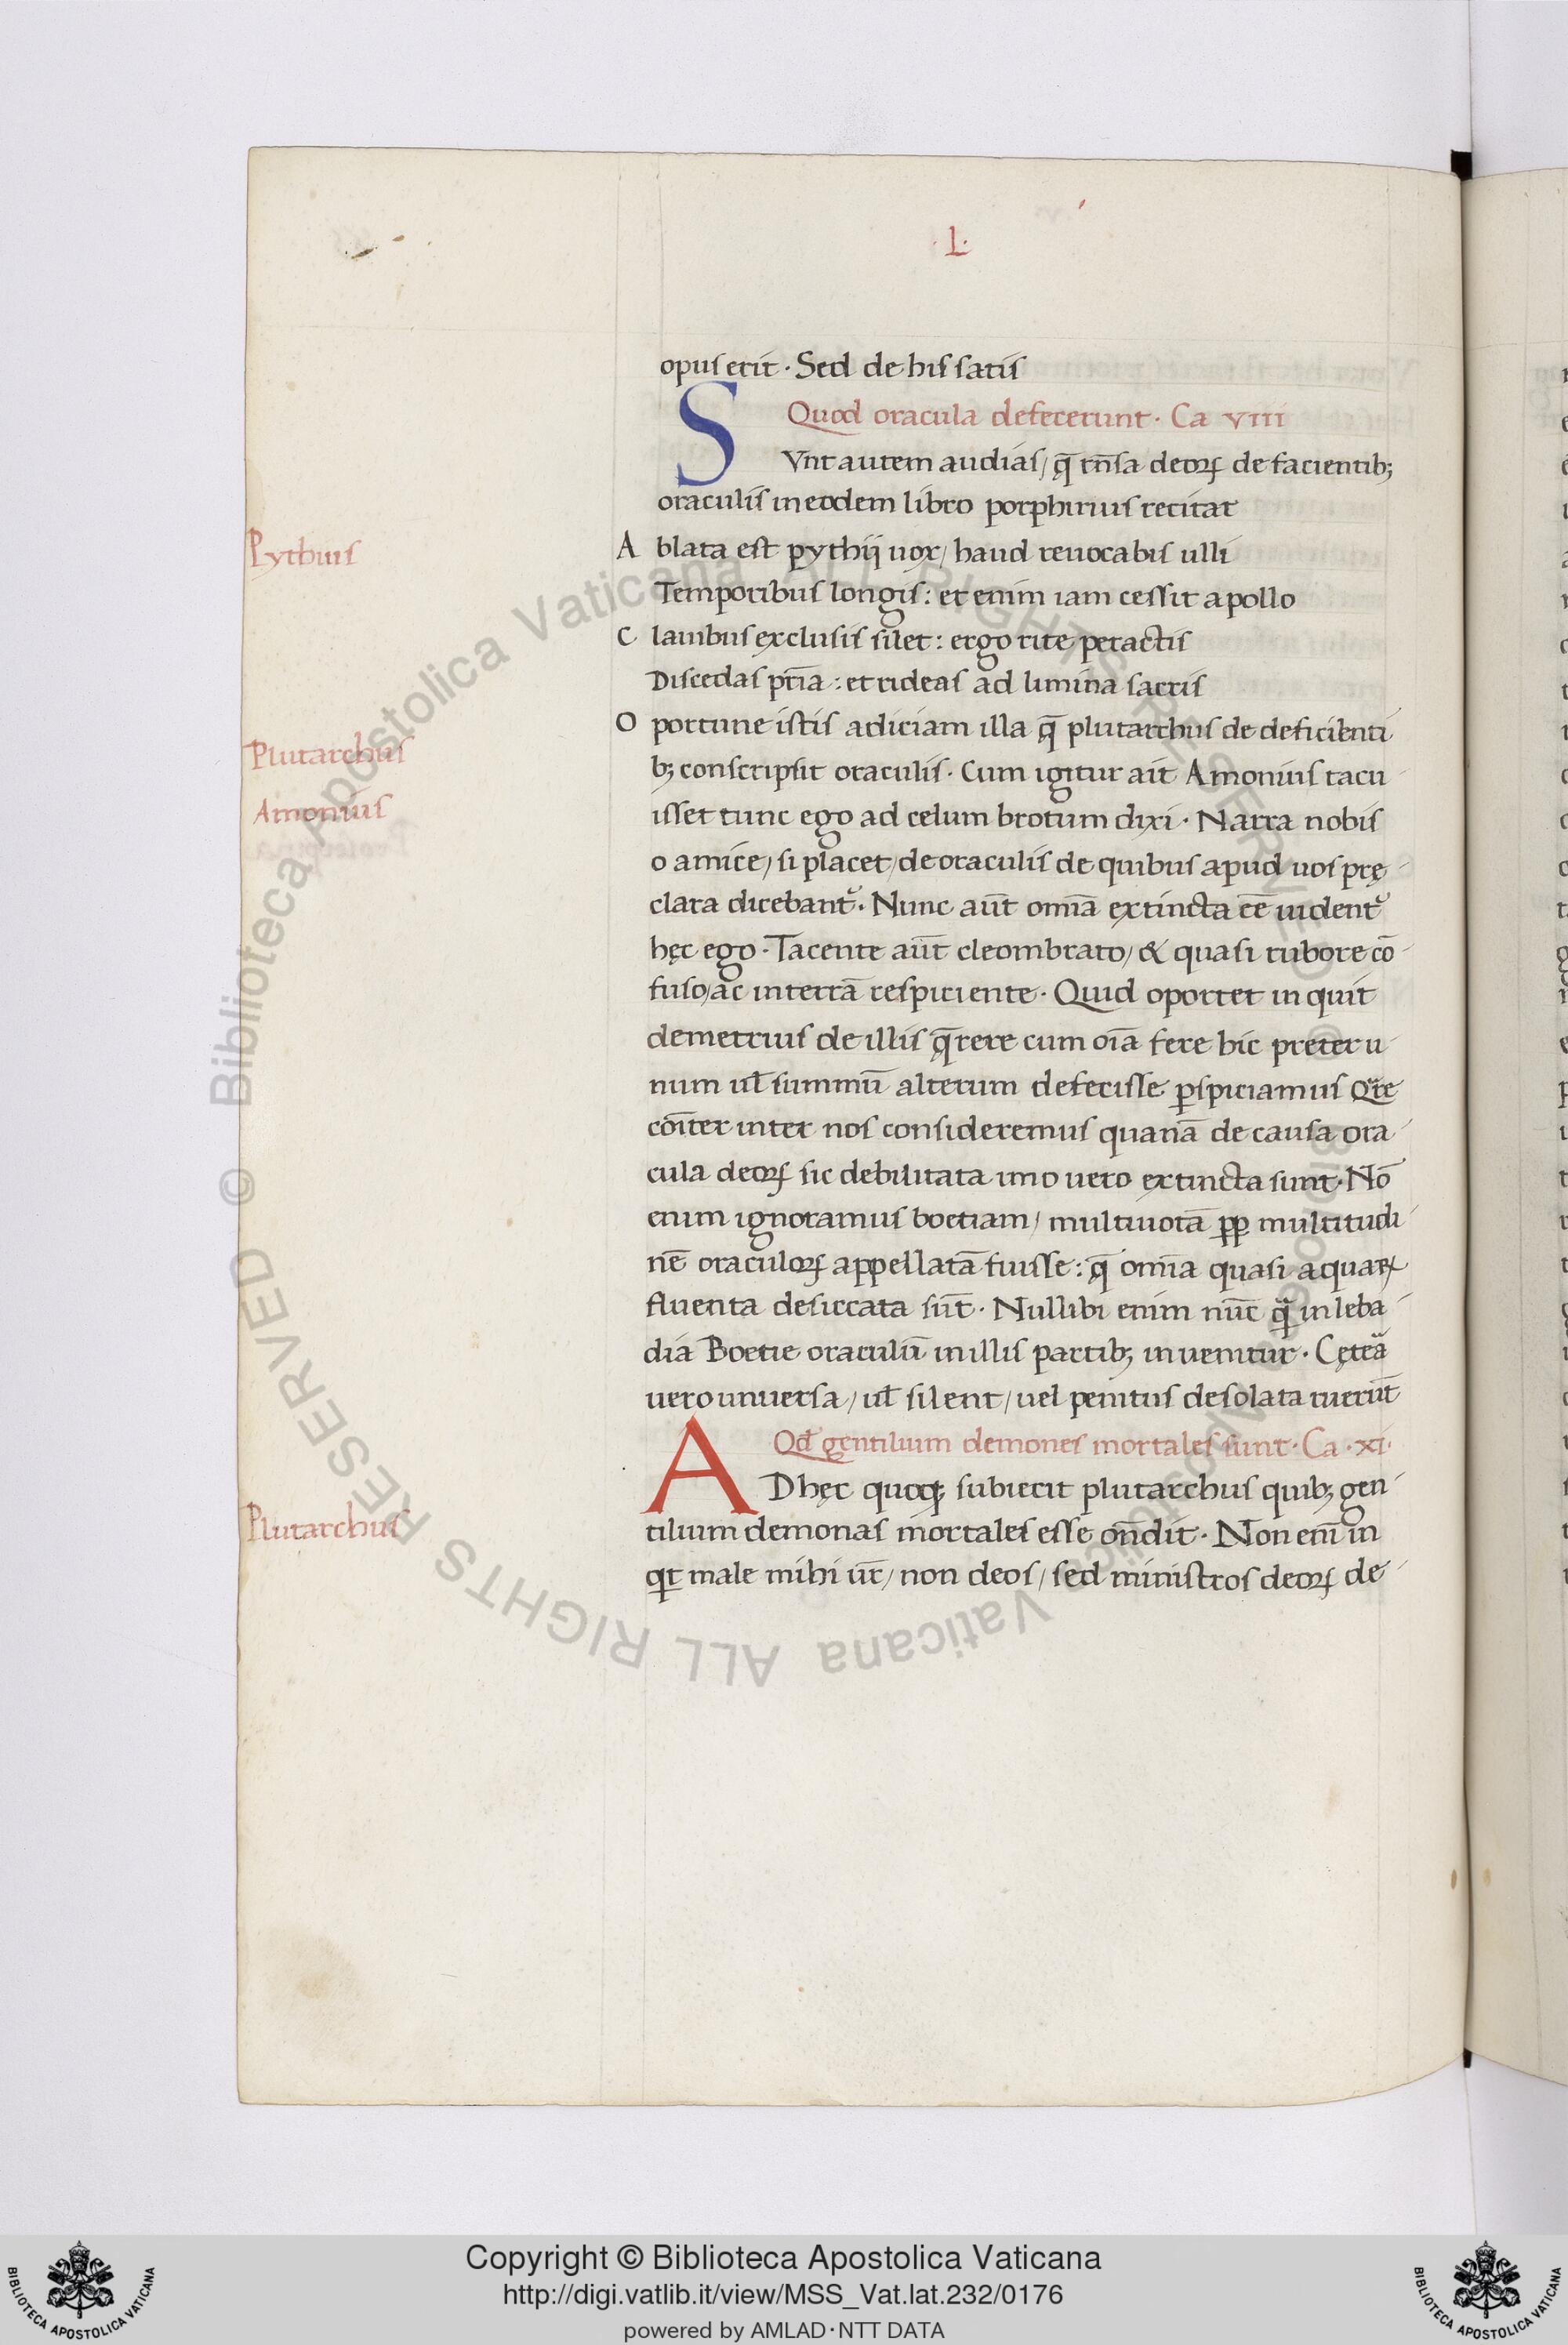 ·L·
opus erit · Sed de his satis
Quod oracula defecerunt · Ca VIII
SVnt autem audias / q̄ rn̄sa deoꝝ de facientib;
oraculis in eodem libro porphirius recitat
Pythius
A blata est pythij uox / haud reuocabis ulli
Temporibus longis : et enim iam cessit apollo
C lauibus exclusis silet : ergo rite peractis
Discedas pr̄ia : et rideas ad limina sacris
Plutarchus
O portune istis adiciam illa q̄ plutarchus de deficienti
b; conscripsit oraculis · Cum igitur ait Amonius tacu
Amonius
isset tunc ego ad celum brotum dixi · Narra nobis
o amice / si placet / de oraculis de quibus apud uos prę
clara dicebant᷑ · Nunc aūt om̄ia extincta eē uident᷑
hęc ego · Tacente aūt cleombrato / & quasi rubore cō
fuso / ac in terrā respiciente · Quid oportet in quit
demetrius de illis q̄rere cum oīa fere hic preter u
num ul̄ summū alterum defecisse ꝑspiciamus Qre
cōiter inter nos consideremus quanā de causa ora
cula deoꝝ sic debilitata imo uero extincta sunt · Nō
enim ignoramus boetiam / multiuotā ꝓp multitudi
nē oraculoꝝ appellatā fuisse : q̄ om̄ia quasi aquaꝝ
fluenta desiccata sūt · Nullibi enim nūc q̄ in leba
dia Boetie oraculū in illis partib; inuenitur · Cętea
uero uniuersa / ul̄ silent / uel penitus desolata ruerūt
Qd̄ gentilium demones mortales sunt · Ca · xi ·
ADhęc quoqꝫ subiecit plutarchus quib; gen
Plutarchus
tilium demonas mortales esse on̄dit · Non enī in
qt male mihi ūr / non deos / sed ministros deoꝝ de
© Biblioteca Apostolica Vaticana ALL RIGHTS RESERVED © Biblioteca Apostolica Vaticana ALL RIGHTS RESERVED
Copyright © Biblioteca Apostolica Vaticana
http://digi.vatlib.it/view/MSS_Vat.lat.232/0176
powered by AMLAD·NTT DATA
BIBLIOTECA APOSTOLICA VATICANA
BIBLIOTECA APOSTOLICA VATICANA